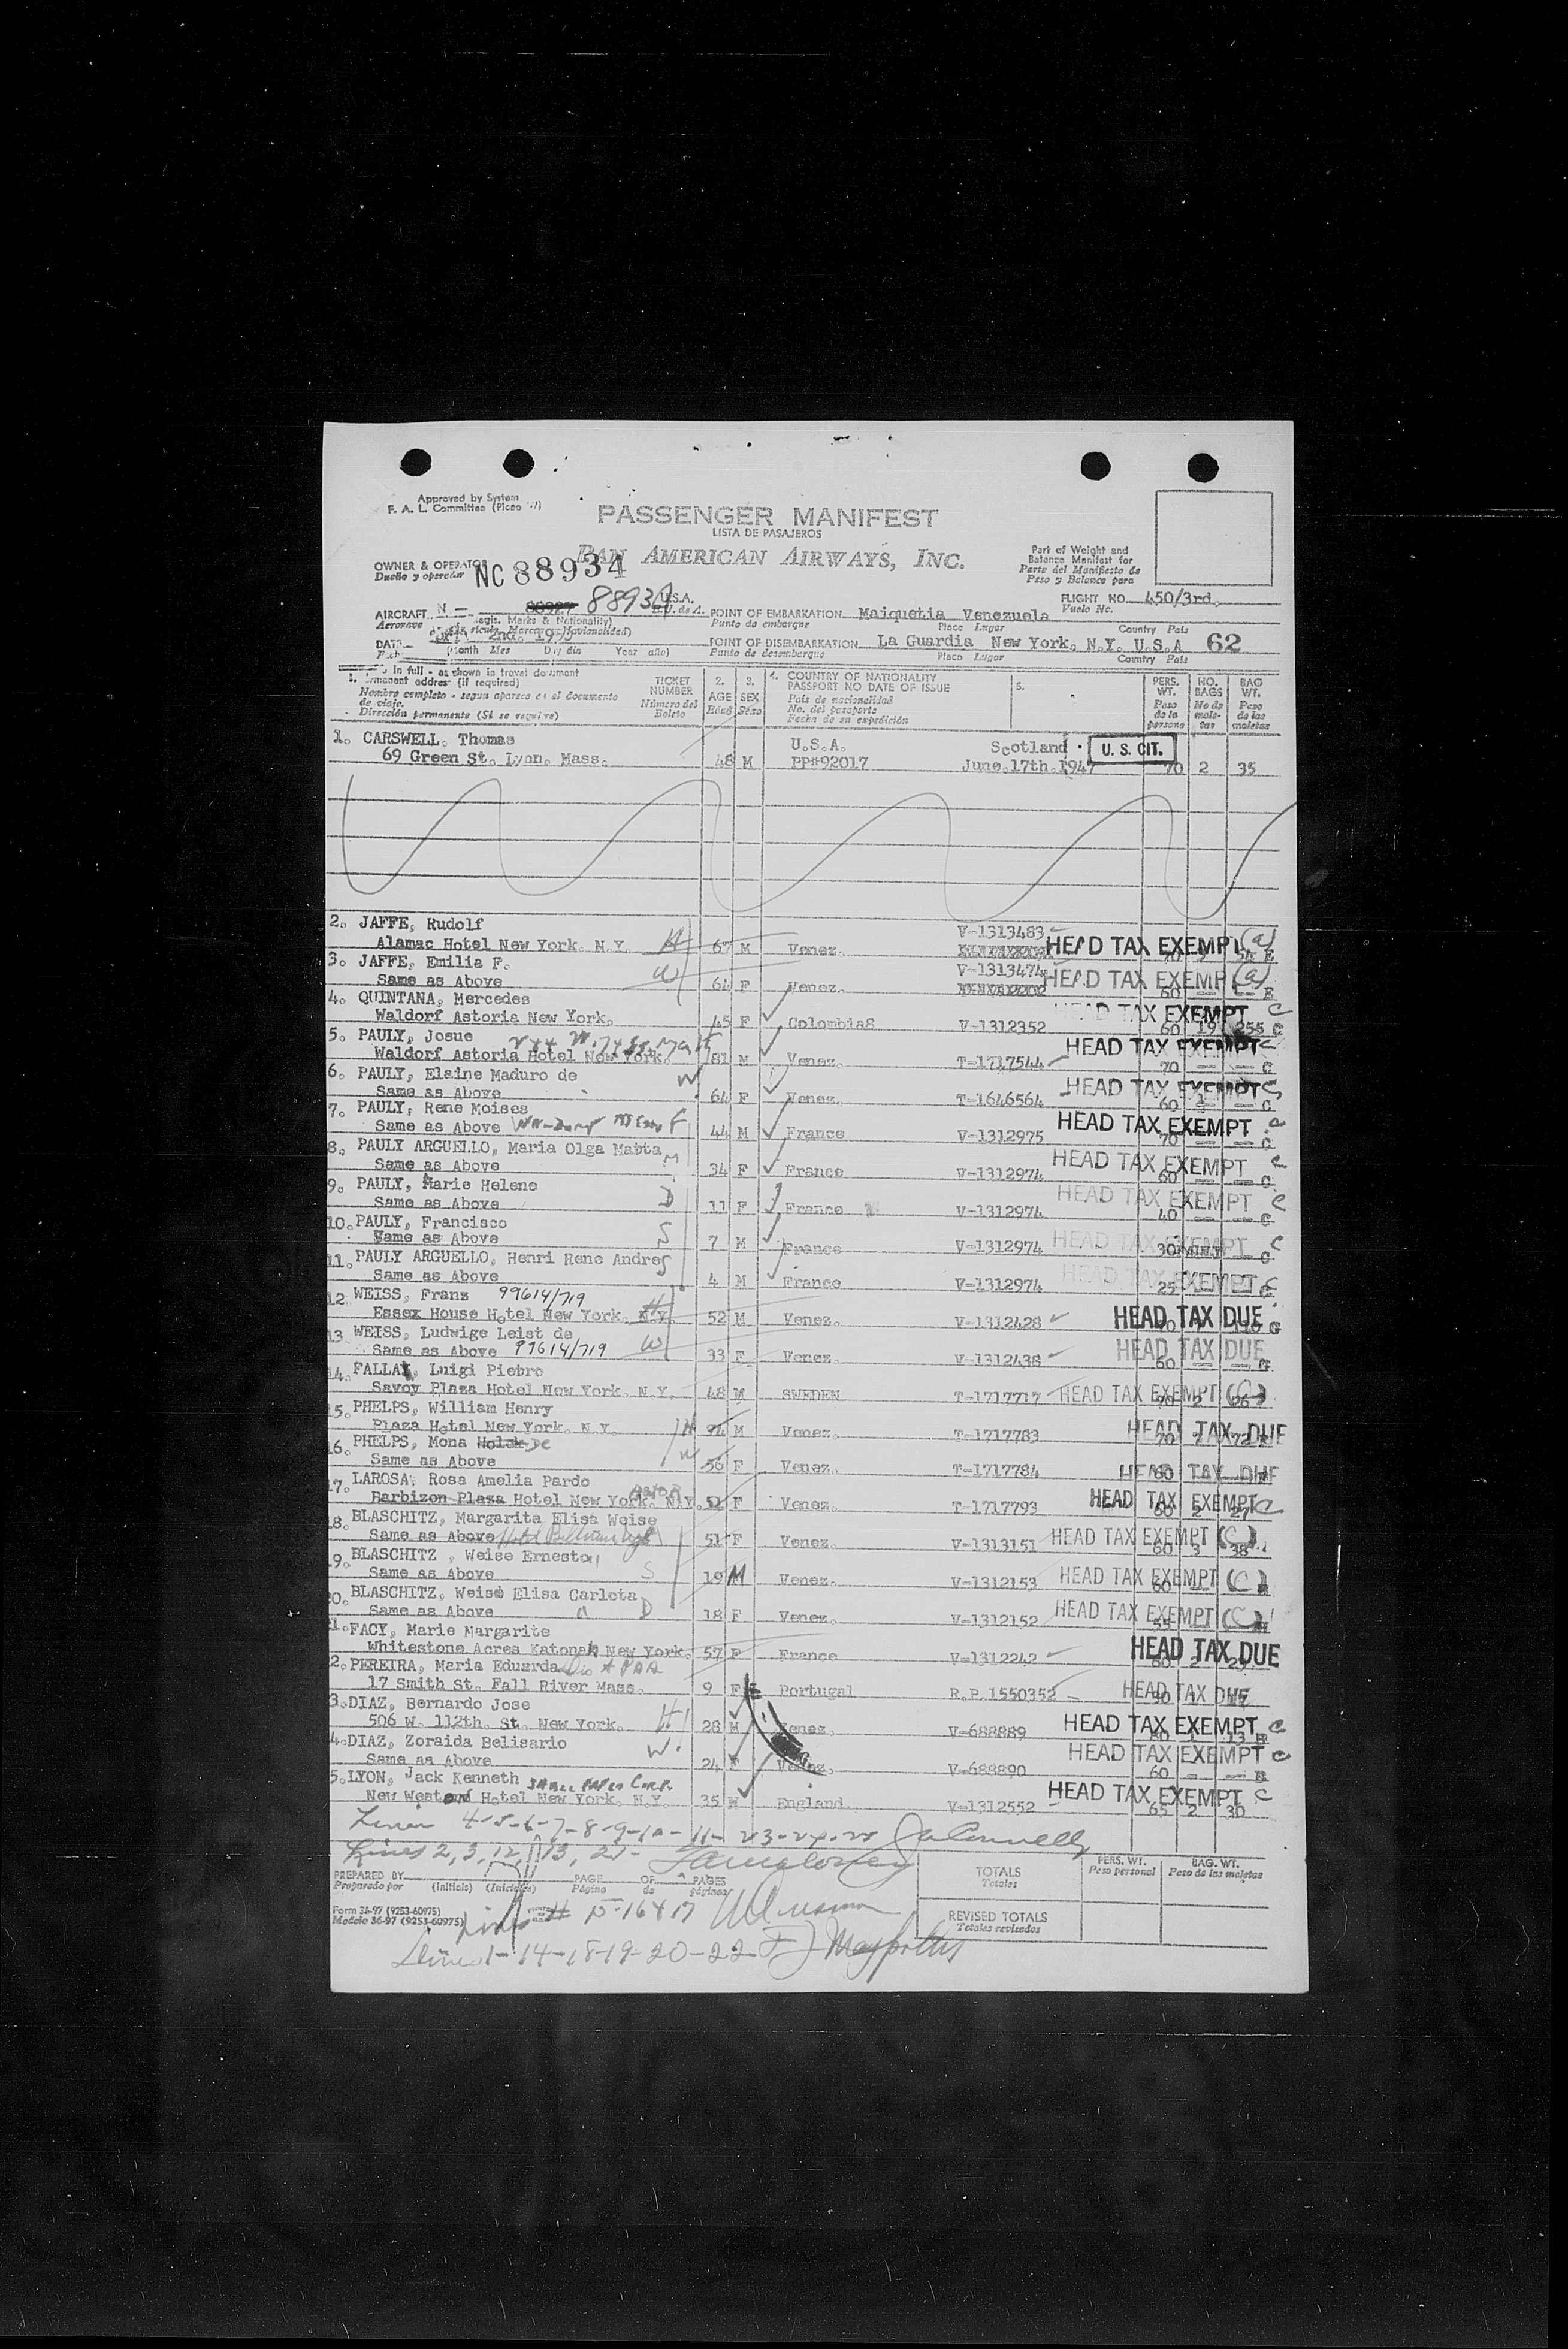 Approved by System
F. A. L. Committee
PASSENGER MANIFEST
LISTA DE PASAJEROS
PAN AMERICAN AIRWAYS, INC.
Part of Weight and
Balance Manifest for
Parte del Manifiesto de
Peso y Balance para
OWNER & OPERATOR
Dueño y operador
NC 88934
FLIGHT NO. 450/3rd.
Vuelo No.
AIRCRAFT N - 88927 88934 U.S.A.
Aeronave
POINT OF EMBARKATION Maiquetia Venezuela
Punto de embarque Place Lugar Country País
DATE 2nd.
(Month Mes Day día Year año)
POINT OF DISEMBARKATION La Guardia New York. N.Y. U.S.A 62
Punto de desembarque Place Lugar Country País
1. in full - as shown in travel document
permanent address (if required)
Nombre completo - segun aparece en el documento
de viaje.
Dirección permanente (Si se requiere)
TICKET NUMBER
Número del Boleto
2. AGE Edad
3. SEX Sexo
4. COUNTRY OF NATIONALITY
PASSPORT NO DATE OF ISSUE
País de nacionalidad
No. del pasaporte
Fecha de su expedición
5.
PERS. WT.
Peso de la persona
NO. BAGS
No de maletas
BAG WT.
Peso de las maletas
1. CARSWELL, Thomas U.S.A. Scotland U. S. CIT.
69 Green St. Lynn. Mass. 48 M PP#92017 June.17th.1947 70 2 35
2. JAFFE, Rudolf V-1313483
Alamac Hotel New York. N.Y. H 67 M Venez. HEAD TAX EXEMPT (a)
3. JAFFE, Emilia F. V-1313474
Same as Above W 64 F Venez. HEAD TAX EXEMPT (a) 60
4. QUINTANA, Mercedes
Waldorf Astoria New York. 45 F Colombia V-1312352 HEAD TAX EXEMPT C 60 19 255 C
5. PAULY, Josue
Waldorf Astoria Hotel New York. 81 M Venez. T-1717544 HEAD TAX EXEMPT C 70 C
6. PAULY, Elaine Maduro de W
Same as Above 64 F Venez. T-1646564 HEAD TAX EXEMPT C 60 C
7. PAULY, Rene Moises
Same as Above 44 M France V-1312975 HEAD TAX EXEMPT C 70 C
8. PAULY ARGUELLO, Maria Olga M
Same as Above 34 F France V-1312974 HEAD TAX EXEMPT C 60 C
9. PAULY, Marie Helene D
Same as Above 11 F France V-1312974 HEAD TAX EXEMPT C 40 C
10. PAULY, Francisco S
Same as Above 7 M France V-1312974 HEAD TAX EXEMPT C 30 C
11. PAULY ARGUELLO, Henri Rene Andre S
Same as Above 4 M France V-1312974 HEAD TAX EXEMPT C 25
12. WEISS, Franz 99614/719
Essex House Hotel New York. N.Y. H 52 M Venez. V-1312428 HEAD TAX DUE G
13. WEISS, Ludwige Leist de
Same as Above 99614/719 W 33 F Venez. V-1312438 HEAD TAX DUE 60
14. FALLAI, Luigi Pietro
Savoy Plaza Hotel New York. N.Y. 48 M SWEDEN T-1717717 HEAD TAX EXEMPT (C) 70 2 26
15. PHELPS, William Henry
Plaza Hotel New York. N.Y. H M Venez. T-1717783 HEAD TAX DUE 70 72
16. PHELPS, Mona de
Same as Above W 56 F Venez. T-1717784 HEAD TAX DUE 60
17. LAROSA, Rosa Amelia Pardo
Barbizon Plaza Hotel New York. N.Y. F Venez. T-1717793 HEAD TAX EXEMPT C 60 2 27
18. BLASCHITZ, Margarita Elisa Weise
Same as Above 51 F Venez. V-1313151 HEAD TAX EXEMPT (C) 60 3 38
19. BLASCHITZ , Weise Ernesto
Same as Above S 19 M Venez. V-1312153 HEAD TAX EXEMPT (C) 60
20. BLASCHITZ, Weise Elisa Carlota
Same as Above D 18 F Venez. V-1312152 HEAD TAX EXEMPT (C) 55
21. FACY, Marie Margarite
Whitestone Acres Katonah New York. 57 F France V-1312242 HEAD TAX DUE 60 2
22. PEREIRA, Maria Eduarda
17 Smith St. Fall River Mass. 9 F Portugal R.P.1550352 HEAD TAX DUE
23. DIAZ, Bernardo Jose
506 W. 112th. St. New York. H 28 M Venez. V-688889 HEAD TAX EXEMPT C 80 1 13
24. DIAZ, Zoraida Belisario
Same as Above W 24 F Venez. V-688890 HEAD TAX EXEMPT C 60
25. LYON, Jack Kenneth
New Weston Hotel New York. N.Y. 35 M England V-1312552 HEAD TAX EXEMPT C 65 2 30
Lines 4-5-6-7-8-9-10-11-23-24-25
Lines 2, 3, 12, 13, 21-
PREPARED BY (Initials) (Iniciales)
Preparado por
PAGE OF PAGES
Página de páginas
TOTALS
Totales
PERS. WT.
Peso personal
BAG. WT.
Peso de las maletas
Form 36-97 (9253-60975)
Modelo 36-97 (9253-60975)
REVISED TOTALS
Totales revisados
Lines 1-14-18-19-20-22